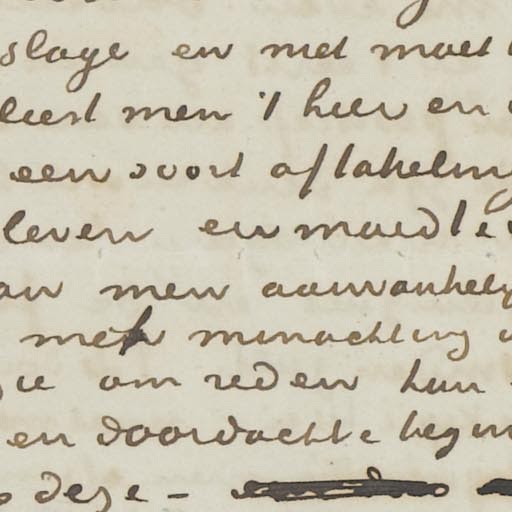 slage en met moet
leest men 't hier en
een soort aftakeling
leven en moedle
men aanvankely
met minachting
om reden hun
en doordachte begin
deze –